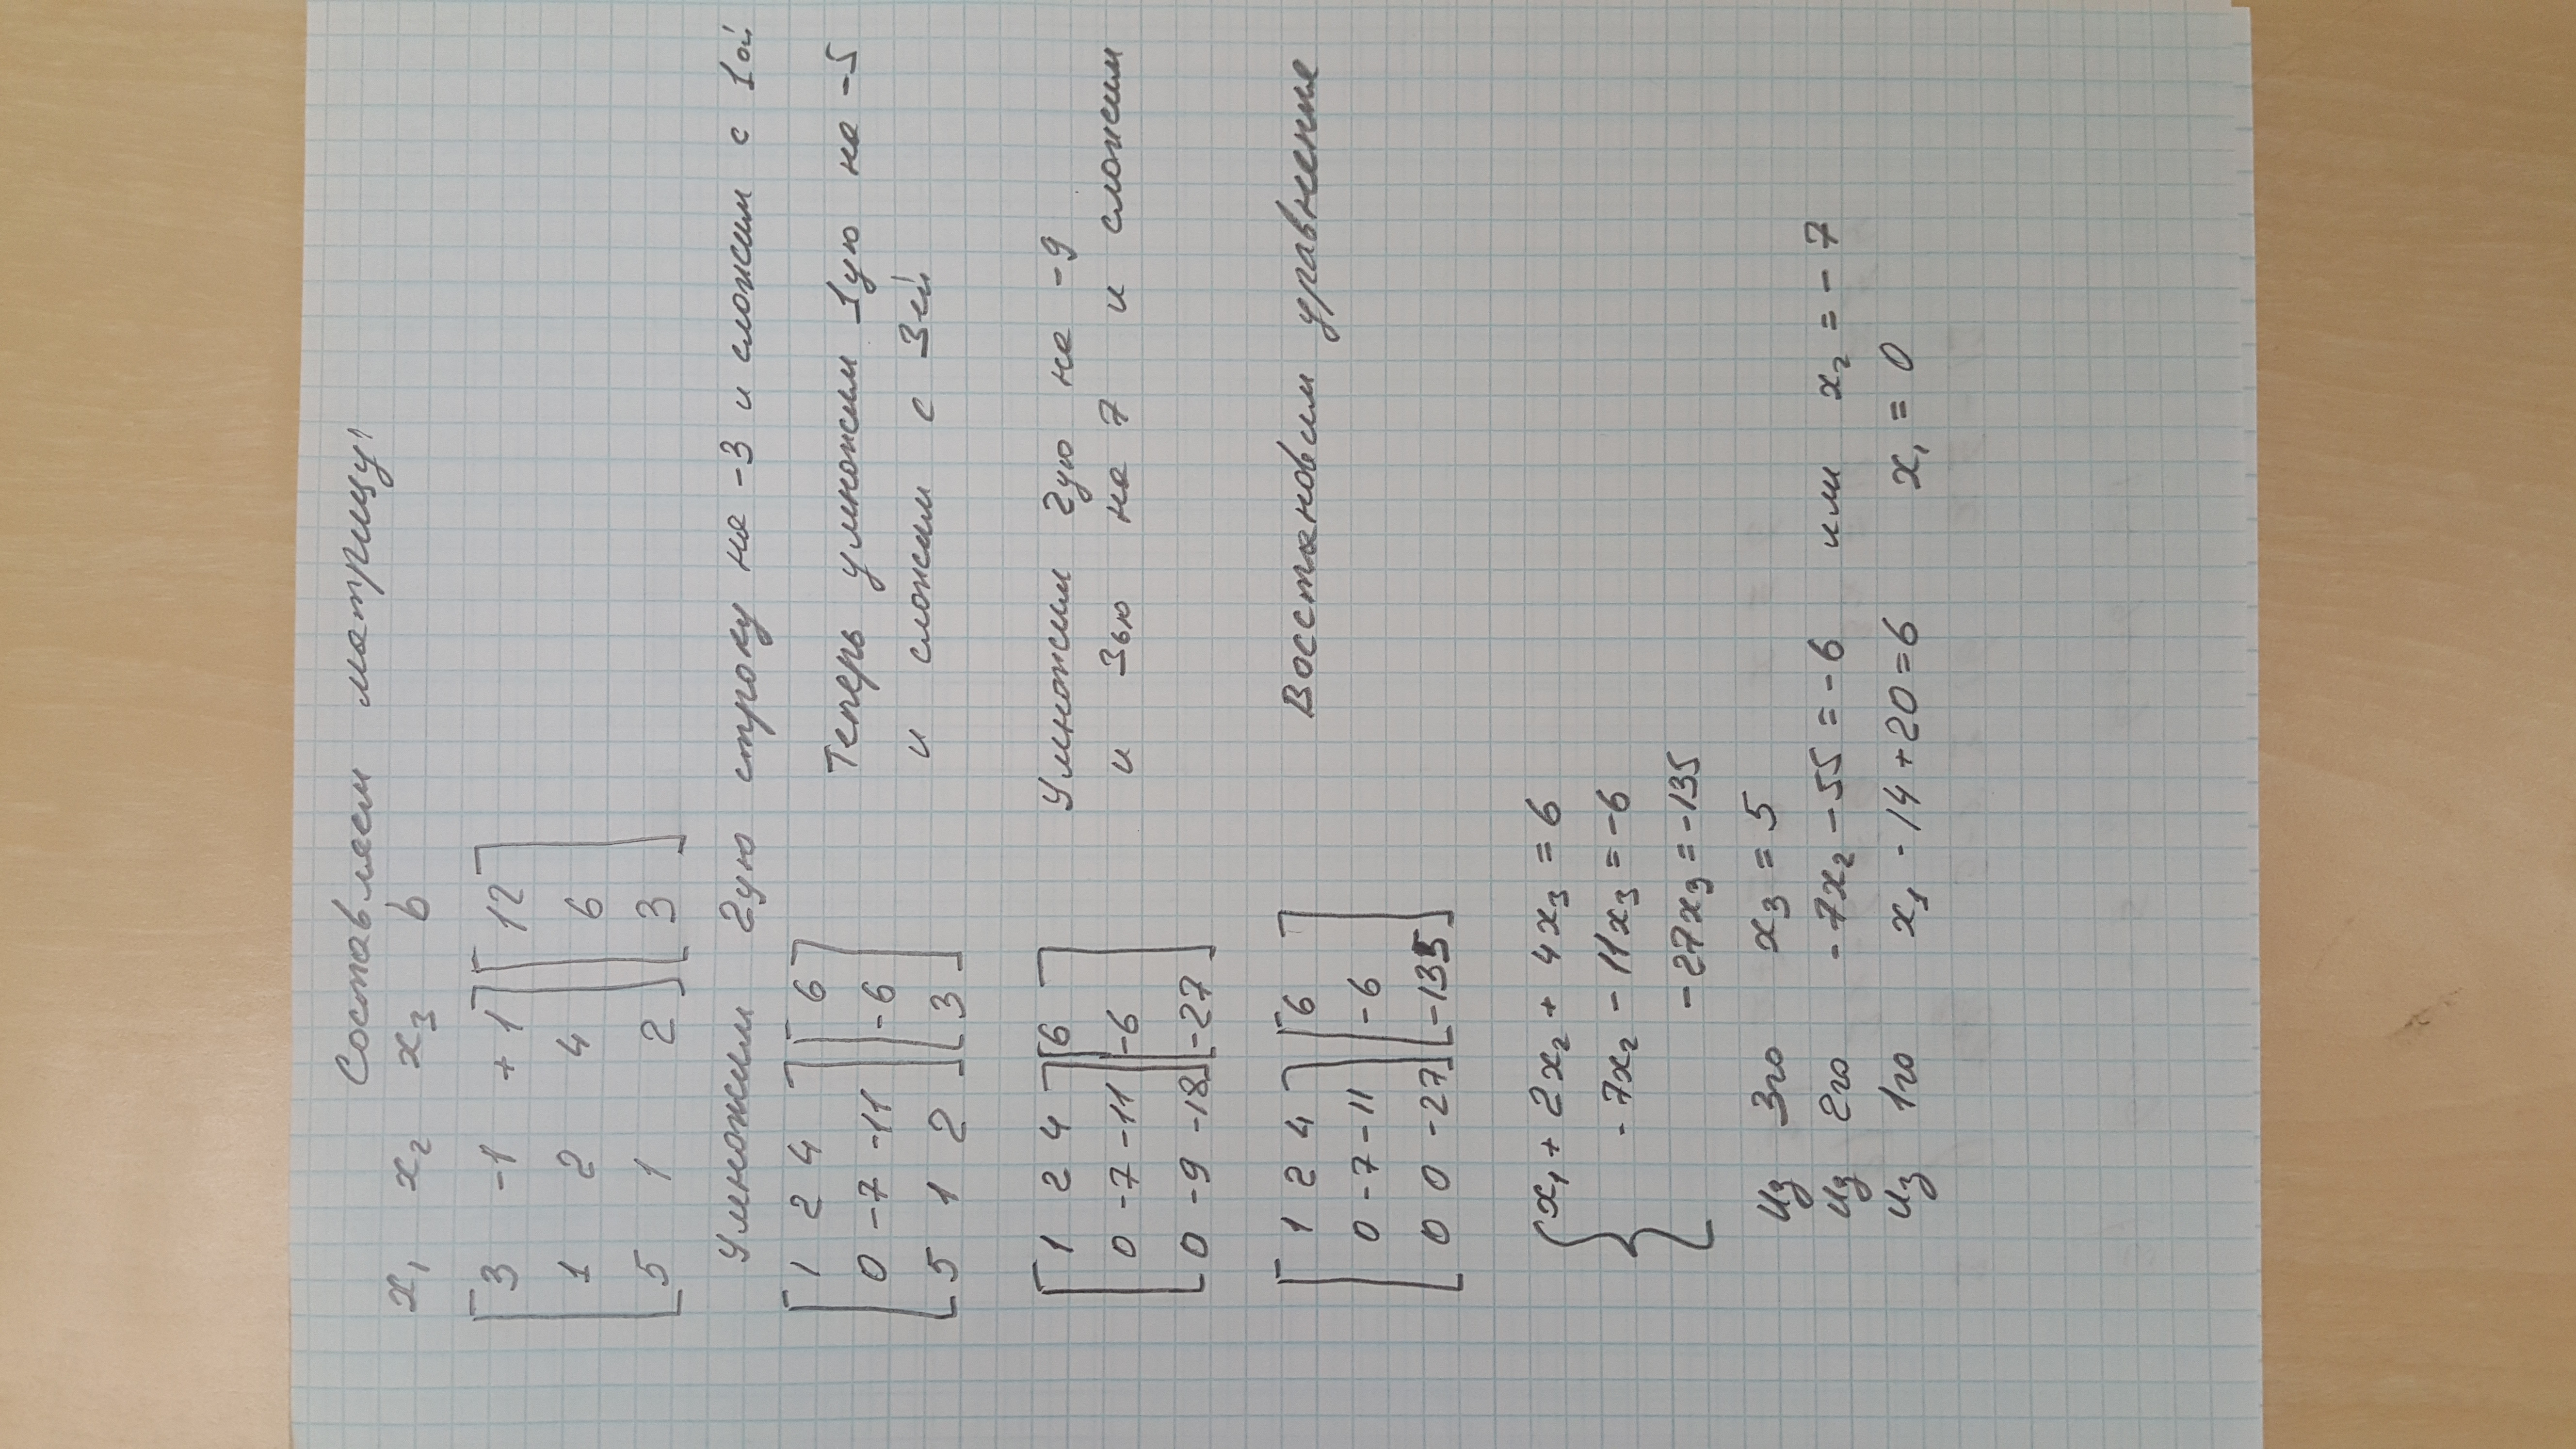 Составляем матрицу
x₁ x₂ x₃ b
[3 -1 +1] [12]
[1 2 4] [6]
[5 1 2] [3]
Умножим 2ую строку на -3 и сложим с 1ой
[1 2 4] [6]
[0 -7 -11] [-6]
[5 1 2] [3]
Теперь умножим 1ую на -5
и сложим с 3ей
[1 2 4] [6]
[0 -7 -11] [-6]
[0 -9 -18] [-27]
Умножим 2ую на -9
и 3ью на 7 и сложим
[1 2 4] [6]
[0 -7 -11] [-6]
[0 0 -27] [-135]
Восстановим уравнение
{ x₁ + 2x₂ + 4x₃ = 6
- 7x₂ - 11x₃ = -6
-27x₃ = -135
Из 3го x₃ = 5
Из 2го -7x₂ - 55 = -6 или x₂ = -7
Из 1го x₁ - 14 + 20 = 6 x₁ = 0